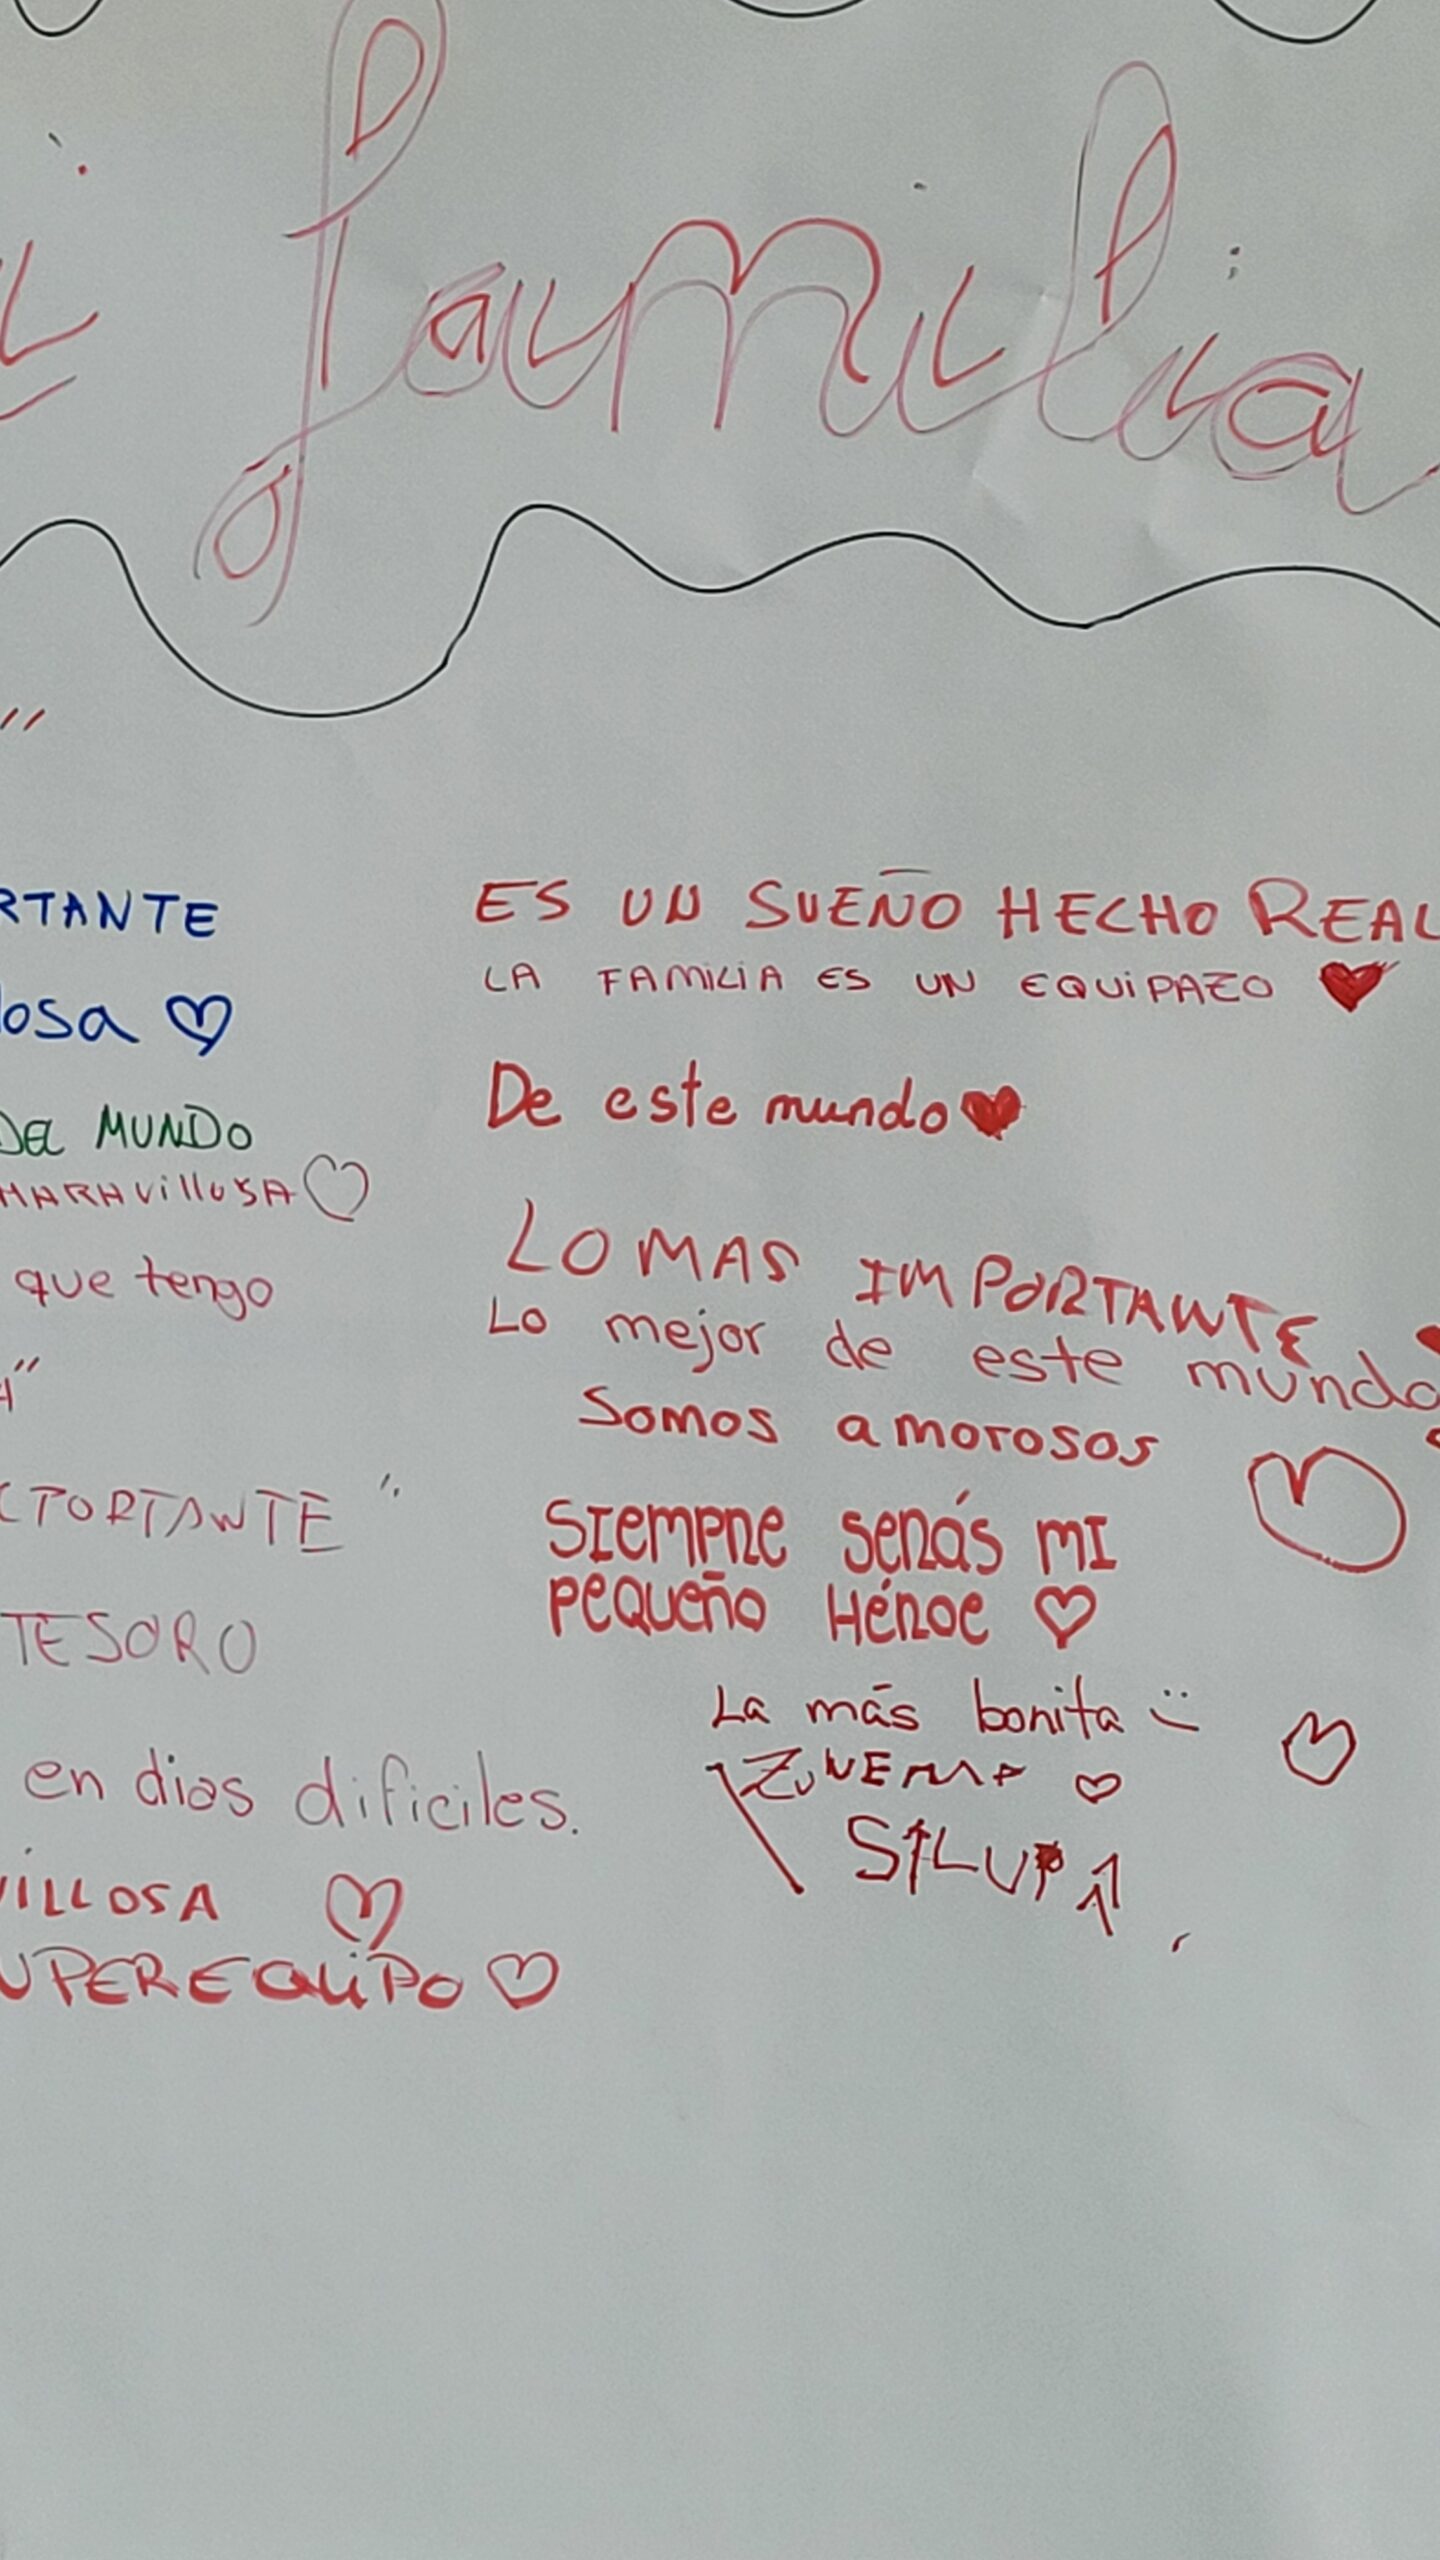 familia
RTANTE
losa
DEL MUNDO
MARAVillOSA
que tengo
TESORO
en dias dificiles.
VILLOSA
UPER EQUIPO
ES UN SUEÑO HECHO REAL
LA FAMILIA ES UN EQUIPAZO
De este mundo
LO MAS IMPORTANTE
Lo mejor de este mundo
Somos amorosos
SIEMPRE SERÁS MI
PEQUEÑO HÉROE
La más bonita :)